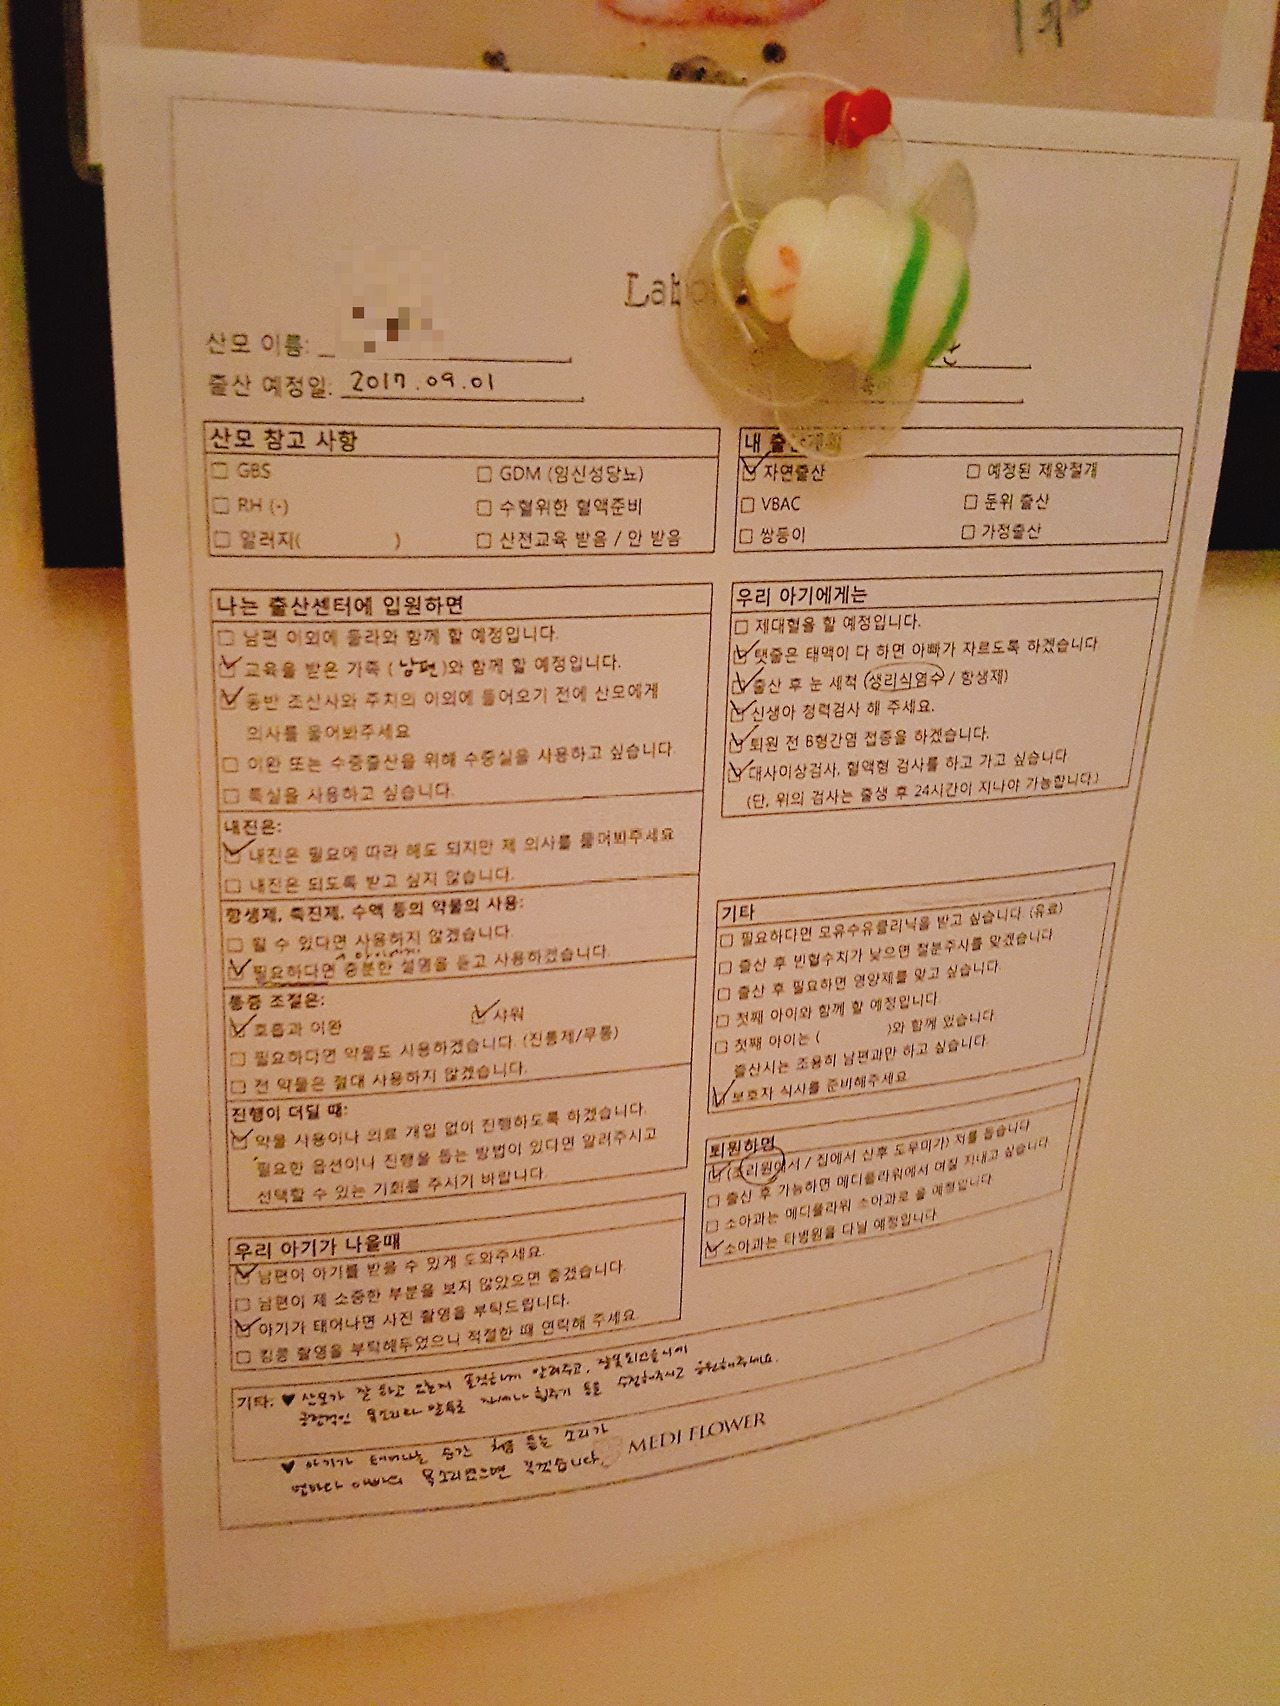 산모 이름:
출산 예정일: 2017.09.01
산모 참고 사항
☐ GBS
☐ GDM (임신성당뇨)
☐ RH (-)
☐ 수혈위한 혈액준비
☐ 알러지( )
☐ 산전교육 받음 / 안 받음
내 출산계획
☑ 자연출산
☐ 예정된 제왕절개
☐ VBAC
☐ 둔위 출산
☐ 쌍둥이
☐ 가정출산
나는 출산센터에 입원하면
☐ 남편 이외에 둘라와 함께 할 예정입니다.
☑ 교육을 받은 가족 (남편)와 함께 할 예정입니다.
☑ 동반 조산사와 주치의 이외에 들어오기 전에 산모에게
의사를 물어봐주세요
☐ 이완 또는 수중출산을 위해 수중실을 사용하고 싶습니다.
☐ 특실을 사용하고 싶습니다.
내진은:
☑ 내진은 필요에 따라 해도 되지만 제 의사를 물어봐주세요
☐ 내진은 되도록 받고 싶지 않습니다.
항생제, 촉진제, 수액 등의 약물의 사용:
☐ 될 수 있다면 사용하지 않겠습니다.
☑ 필요하다면 충분한 설명을 듣고 사용하겠습니다.
통증 조절은:
☑ 호흡과 이완
☑ 샤워
☐ 필요하다면 약물도 사용하겠습니다. (진통제/무통)
☐ 전 약물은 절대 사용하지 않겠습니다.
진행이 더딜 때:
☑ 약물 사용이나 의료 개입 없이 진행하도록 하겠습니다.
필요한 옵션이나 진행을 돕는 방법이 있다면 알려주시고
선택할 수 있는 기회를 주시기 바랍니다.
우리 아기가 나올때
☑ 남편이 아기를 받을 수 있게 도와주세요.
☐ 남편이 제 소중한 부분을 보지 않았으면 좋겠습니다.
☑ 아기가 태어나면 사진 촬영을 부탁드립니다.
☐ 킹콩 촬영을 부탁해두었으니 적절한 때 연락해 주세요
우리 아기에게는
☐ 제대혈을 할 예정입니다.
☑ 탯줄은 태맥이 다 하면 아빠가 자르도록 하겠습니다
☑ 출산 후 눈 세척 (생리식염수 / 항생제)
☑ 신생아 청력검사 해 주세요.
☑ 퇴원 전 B형간염 접종을 하겠습니다.
☑ 대사이상검사, 혈액형 검사를 하고 가고 싶습니다
(단, 위의 검사는 출생 후 24시간이 지나야 가능합니다.)
기타
☐ 필요하다면 모유수유클리닉을 받고 싶습니다. (유료)
☐ 출산 후 빈혈수치가 낮으면 철분주사를 맞겠습니다
☐ 출산 후 필요하면 영양제를 맞고 싶습니다.
☐ 첫째 아이와 함께 할 예정입니다.
☐ 첫째 아이는 ( )와 함께 있습니다.
출산시는 조용히 남편과만 하고 싶습니다.
☑ 보호자 식사를 준비해주세요
퇴원하면
☑ (조리원에서 / 집에서 산후 도우미가) 저를 돕습니다
☐ 출산 후 가능하면 메디플라워에서 며칠 지내고 싶습니다.
☐ 소아과는 메디플라워 소아과로 올 예정입니다.
☑ 소아과는 타병원을 다닐 예정입니다.
기타: ♥ 산모가 잘 하고 있는지 알려주고,
긍정적인 목소리와 말투로 자세나 힘주기 등을 수정해주시고 응원해주세요.
♥ 아기가 태어나는 순간 처음 듣는 소리가
엄마와 아빠의 목소리였으면 좋겠습니다.
MEDI FLOWER